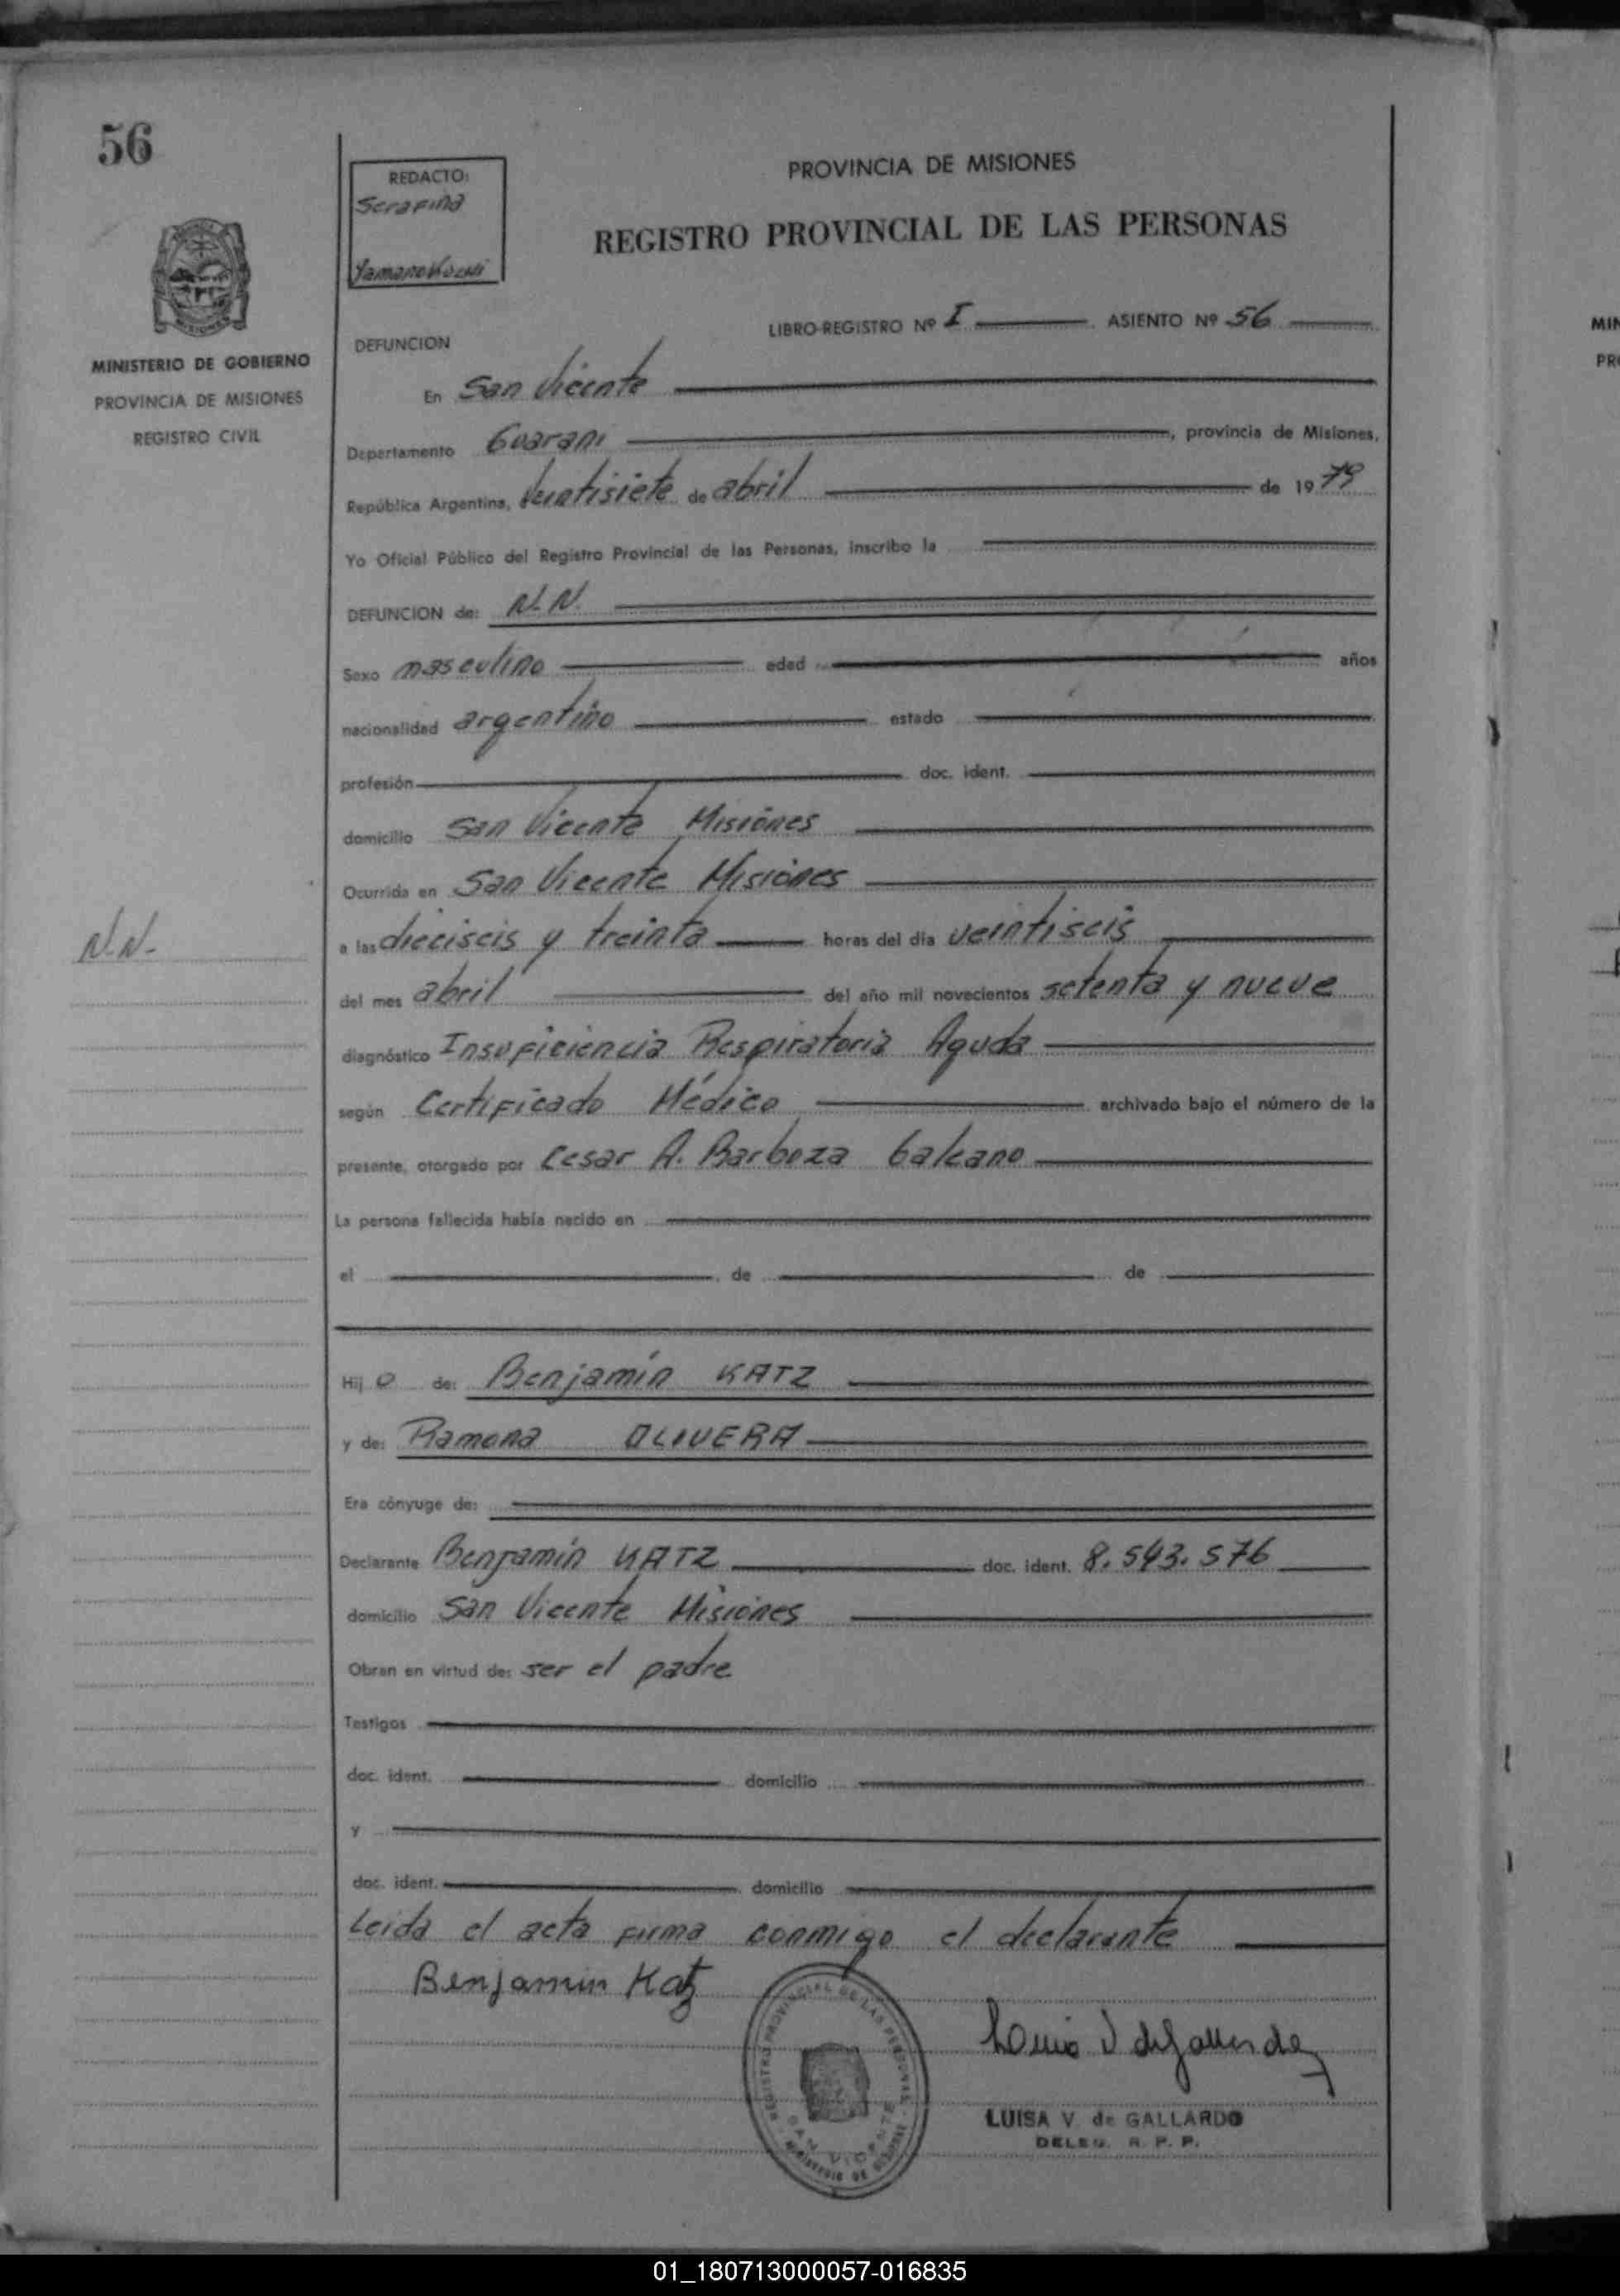 56
REDACTO:
Serafina
MINISTERIO DE GOBIERNO
PROVINCIA DE MISIONES
REGISTRO CIVIL
N.N.
PROVINCIA DE MISIONES
REGISTRO PROVINCIAL DE LAS PERSONAS
LIBRO-REGISTRO Nº I ASIENTO Nº 56
DEFUNCION
En San Vicente
Departamento Guarani, provincia de Misiones,
República Argentina, Veintisiete de abril de 1979
Yo Oficial Público del Registro Provincial de las Personas, inscribo la
DEFUNCION de: N.N.
Sexo masculino edad años
nacionalidad argentino estado
profesión doc. ident.
domicilio San Vicente Misiones
Ocurrida en San Vicente Misiones
a las dieciseis y treinta horas del día veintiseis
del mes abril del año mil novecientos setenta y nueve
diagnóstico Insuficiencia Respiratoria Aguda
según Certificado Médico archivado bajo el número de la
presente, otorgado por Cesar A. Barboza Galeano
La persona fallecida había nacido en
el , de de
Hijo de: Benjamín KATZ
y de: Ramona OLIVERA
Era cónyuge de:
Declarante Benjamín KATZ doc. ident. 8.543.576
domicilio San Vicente Misiones
Obran en virtud de: ser el padre
Testigos
doc. ident. domicilio
y
doc. ident. domicilio
Leida el acta firma conmigo el declarante
Benjamin Katz
REGISTRO PROVINCIAL DE LAS PERSONAS
SAN VICENTE
LUISA V. de GALLARDO
DELEG. R. P. P.
MIN
PRO
01_180713000057-016835